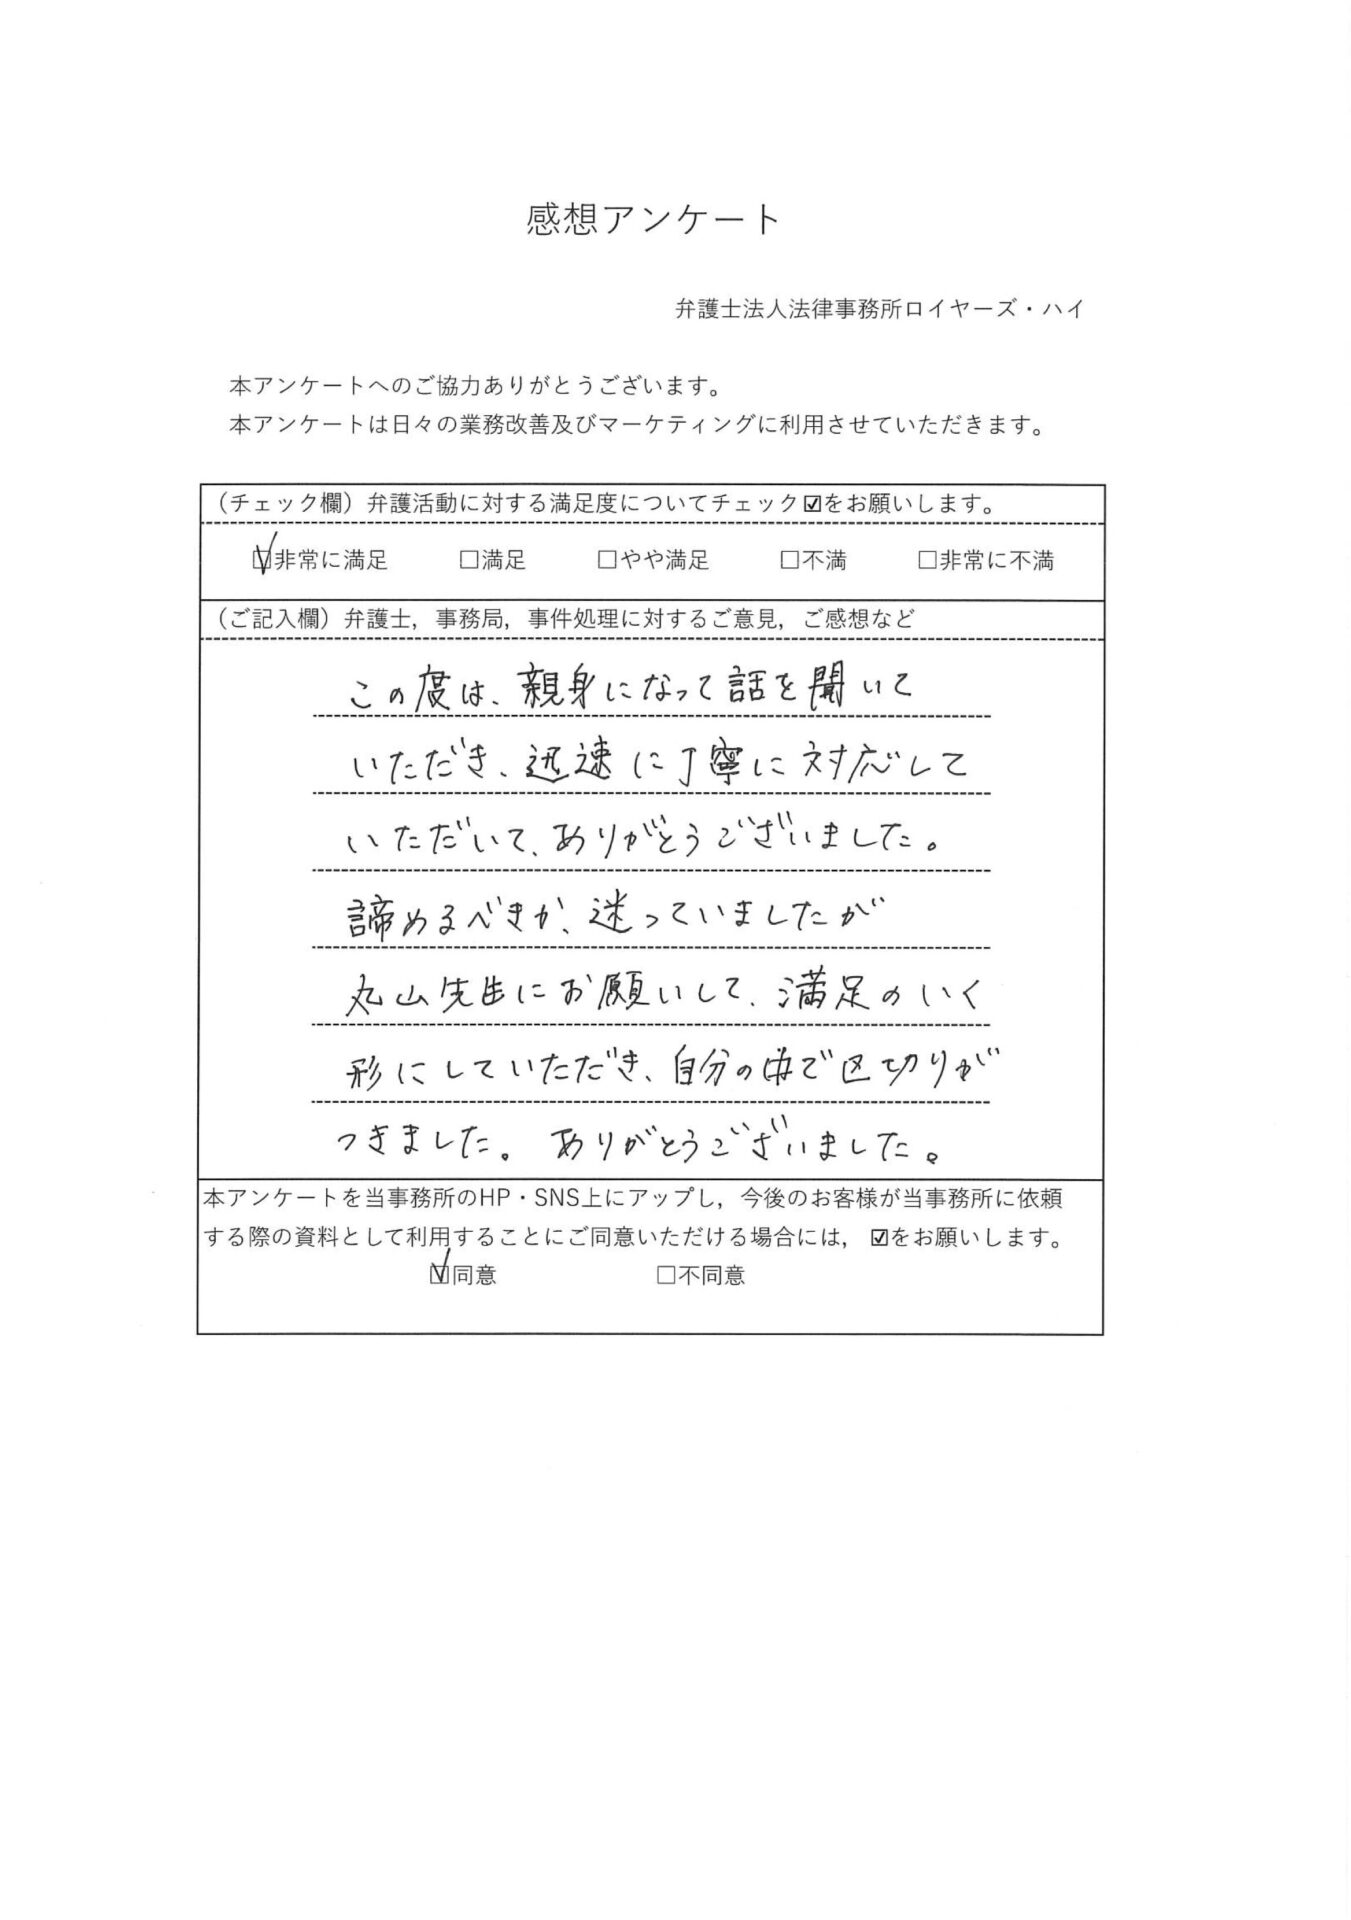 感想アンケート
弁護士法人法律事務所ロイヤーズ・ハイ
本アンケートへのご協力ありがとうございます。
本アンケートは日々の業務改善及びマーケティングに利用させていただきます。
（チェック欄）弁護活動に対する満足度についてチェック☑をお願いします。
☑非常に満足 □満足 □やや満足 □不満 □非常に不満
（ご記入欄）弁護士，事務局，事件処理に対するご意見，ご感想など
この度は、親身になって話を聞いて
いただき、迅速に丁寧に対応して
いただいて、ありがとうございました。
諦めるべきか、迷っていましたが
丸山先生にお願いして、満足のいく
形にしていただき、自分の中で区切りが
つきました。ありがとうございました。
本アンケートを当事務所のHP・SNS上にアップし，今後のお客様が当事務所に依頼
する際の資料として利用することにご同意いただける場合には，☑をお願いします。
☑同意 □不同意